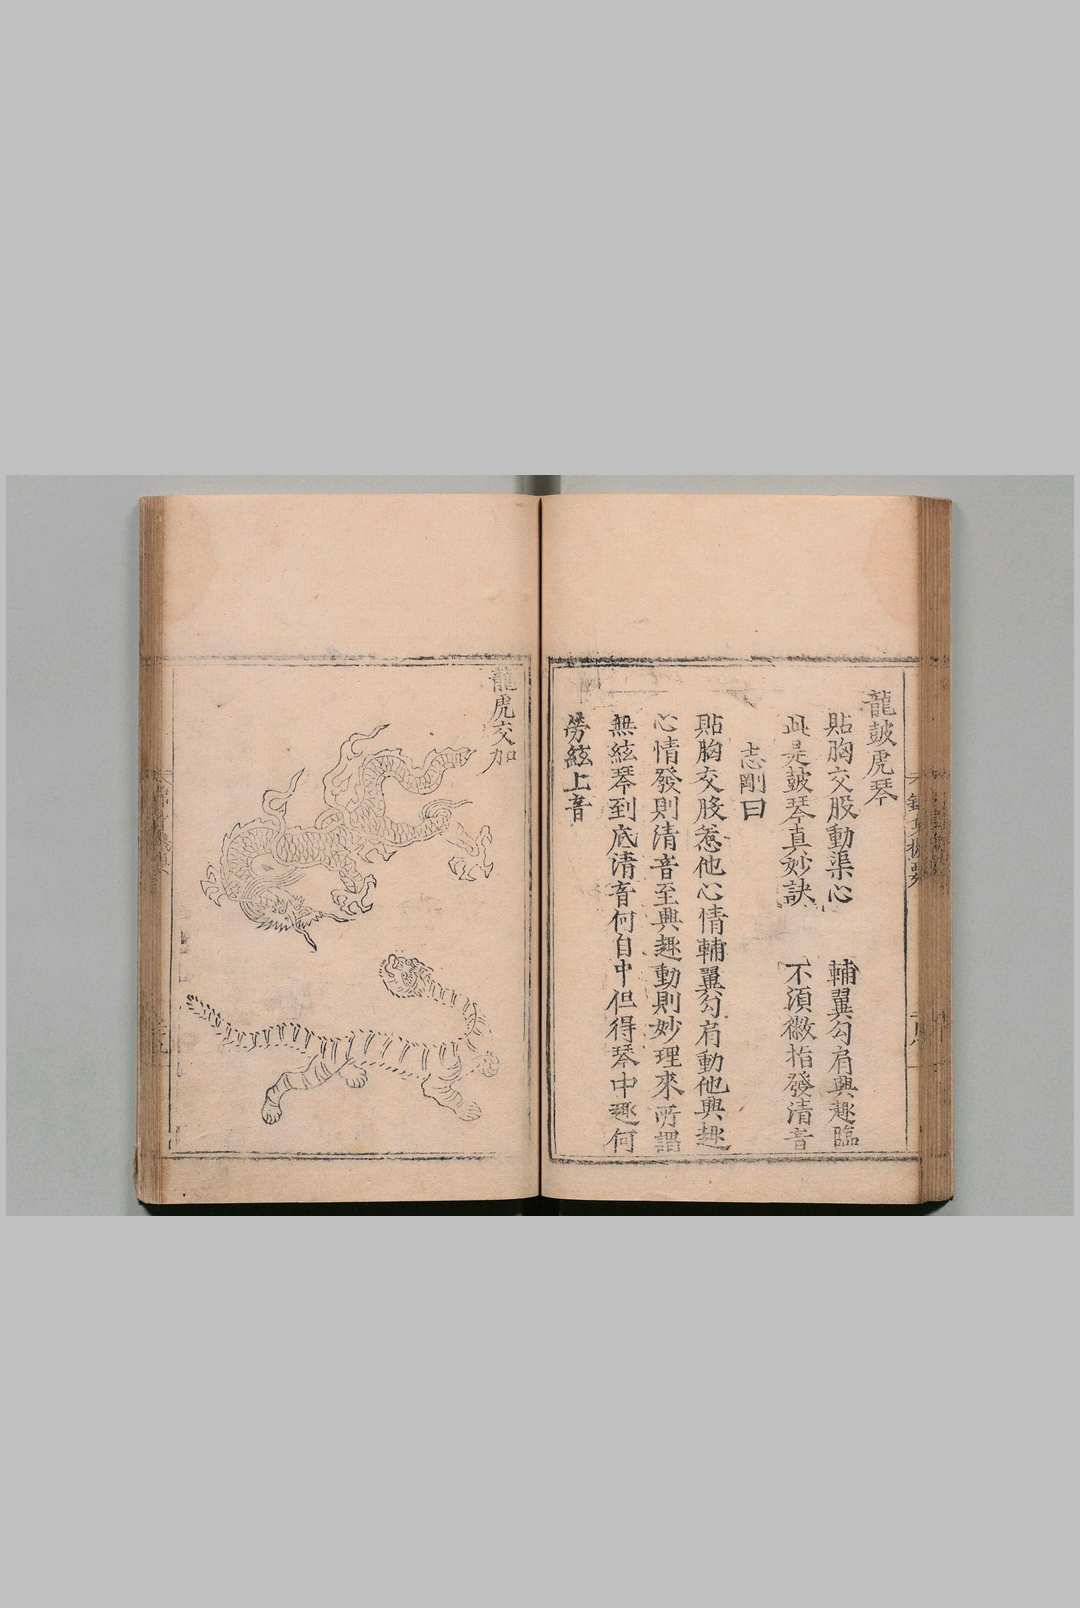 龍鼓虎琴
貼胸交股動渠心　輔翼勾肩興趣臨
此是鼓琴真妙訣　不須徽指發清音
志剛曰
貼胸交股惹他心情輔翼勾肩動他興趣
心情發則清音至興趣動則妙理來所謂
無絃琴到底清音何自中但得琴中趣何
勞絃上音
龍虎交加